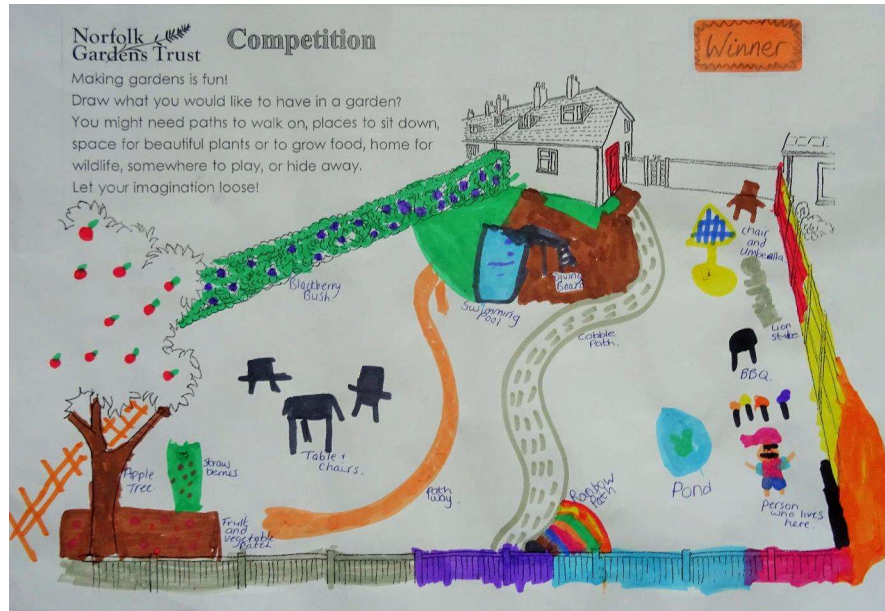 Norfolk
Gardens Trust
Competition
Winner
Making gardens is fun!
Draw what you would like to have in a garden?
You might need paths to walk on, places to sit down,
space for beautiful plants or to grow food, home for
wildlife, somewhere to play, or hide away.
Let your imagination loose!
Blackberry
Bush
Swimming
Pool
Diving
Board
Cobble
Path.
chair
and
umberella
Lion
BBQ.
Table +
chairs.
Apple
Tree
Straw
berries
Fruit
and
vegetable
Patch
Path
way.
Rainbow
Path
Pond
Person
who lives
here.